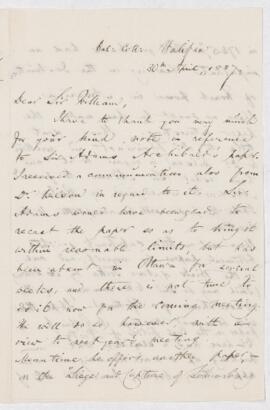 Halifax
30th April, 1887
Dear Sir William,
I have to thank you very much
for your kind note in reference
to Sir Adams Archibald's paper.
I received a communication also from
Dr in regard to it. Sir
Adams would have been glad to
recast the paper so as to bring it
within reasonable limits, but has
been absent in Ottawa for several
weeks, and there is not time to
do it now for the coming meeting.
He will do so however with a
view to next year's meeting.
Meantime he offers another paper
on the Siege and Capture of Louisbourg